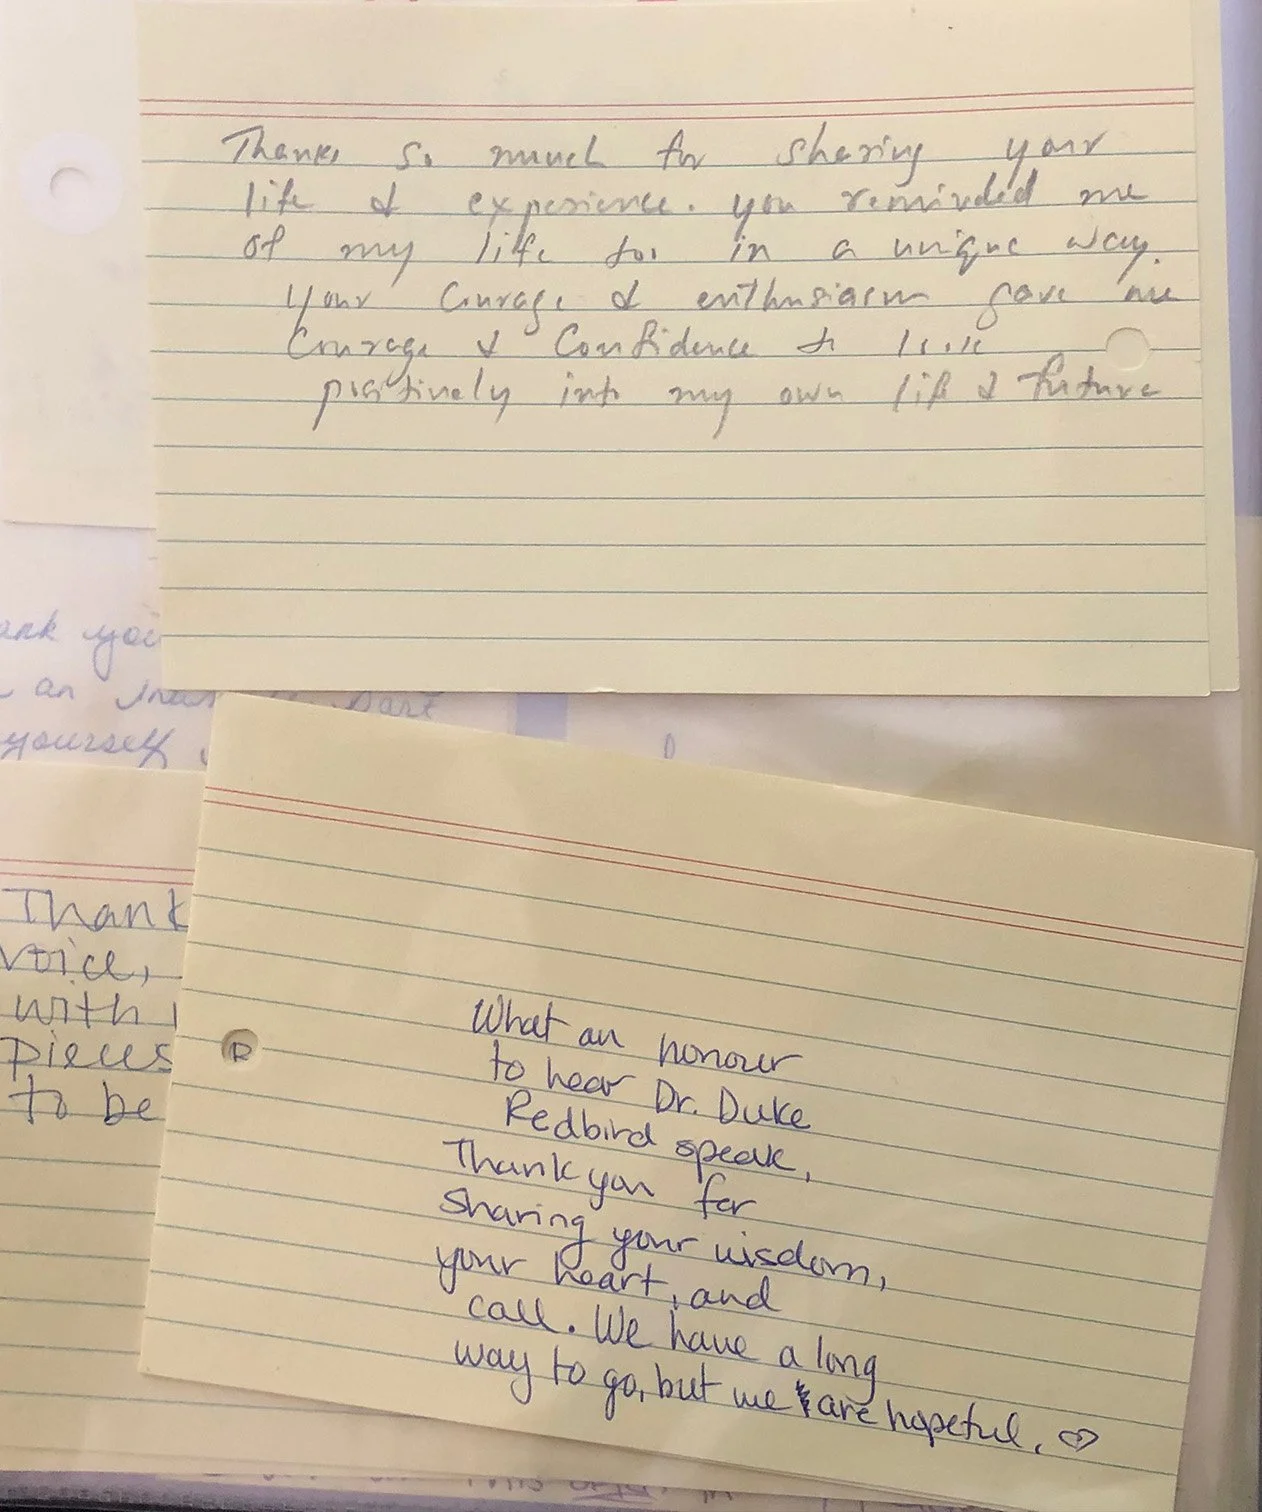 Thanks so much for sharing your
life & experience. you reminded me
of my life too in a unique way.
Your Courage & enthusiasm gave me
Courage & Confidence to look
positively into my own life & future
ank you
an part
yourself
Thank
voice,
with
pieces
to be
R
What an honour
to hear Dr. Duke
Redbird speak,
Thank you for
sharing your wisdom,
your heart, and
call. We have a long
way to go, but we are hopeful.